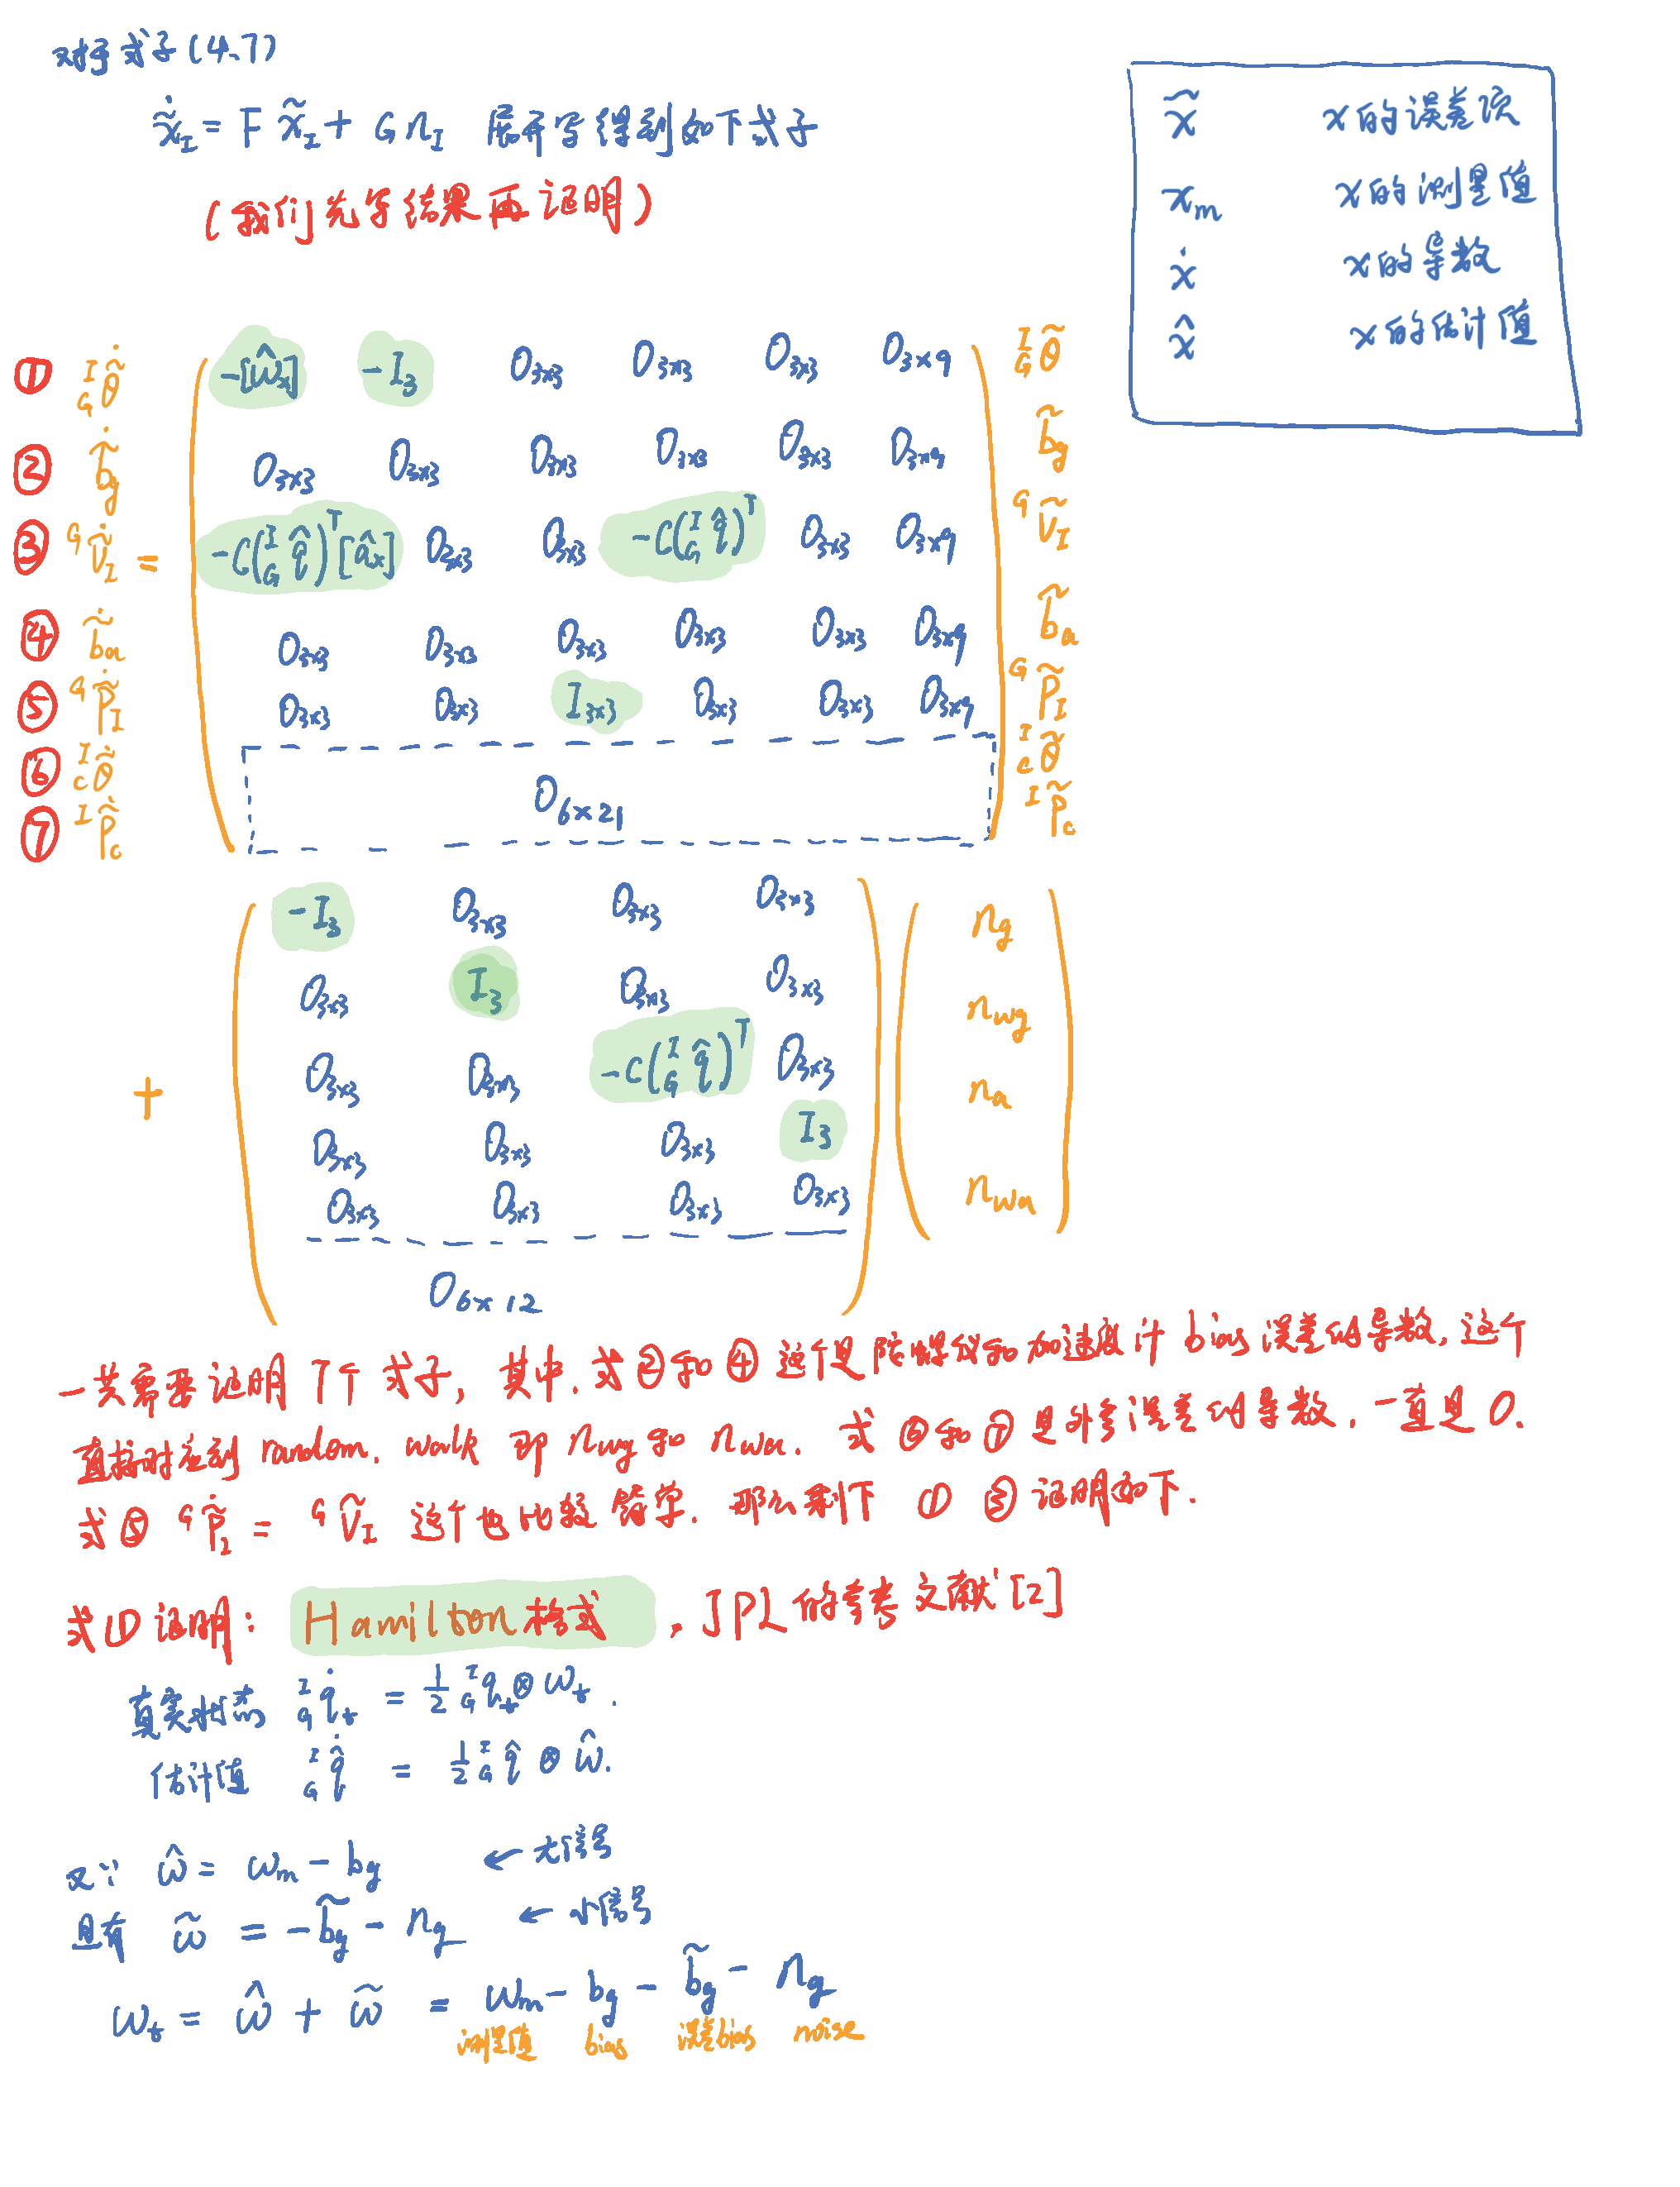 对于式子(4.7)
$\dot{\tilde{x}}_I = F \tilde{x}_I + G n_I$ 展开写得到如下式子
(我们先写结果再证明)
$\tilde{x}$ x的误差项
$x_m$ x的测量值
$\dot{x}$ x的导数
$\hat{x}$ x的估计值
① ${}^I_G\dot{\tilde{\theta}}$ $-[\hat{\omega}_\times]$ $-I_3$ $0_{3\times3}$ $0_{3\times3}$ $0_{3\times3}$ $0_{3\times9}$ ${}^I_G\tilde{\theta}$
② $\dot{\tilde{b}}_g$ $0_{3\times3}$ $0_{3\times3}$ $0_{3\times3}$ $0_{3\times3}$ $0_{3\times3}$ $0_{3\times9}$ $\tilde{b}_g$
③ ${}^G\dot{\tilde{V}}_I$ = $-C({}^I_G\hat{q})^T[\hat{a}_\times]$ $0_{3\times3}$ $0_{3\times3}$ $-C({}^I_G\hat{q})^T$ $0_{3\times3}$ $0_{3\times9}$ ${}^G\tilde{V}_I$
④ $\dot{\tilde{b}}_a$ $0_{3\times3}$ $0_{3\times3}$ $0_{3\times3}$ $0_{3\times3}$ $0_{3\times3}$ $0_{3\times9}$ $\tilde{b}_a$
⑤ ${}^G\dot{\tilde{P}}_I$ $0_{3\times3}$ $0_{3\times3}$ $I_{3\times3}$ $0_{3\times3}$ $0_{3\times3}$ $0_{3\times9}$ ${}^G\tilde{P}_I$
⑥ ${}^I_C\dot{\tilde{\theta}}$ ${}^I_C\tilde{\theta}$
$0_{6\times21}$
⑦ ${}^I\dot{\tilde{P}}_C$ ${}^I\tilde{P}_C$
$-I_3$ $0_{3\times3}$ $0_{3\times3}$ $0_{3\times3}$ $n_g$
$0_{3\times3}$ $I_3$ $0_{3\times3}$ $0_{3\times3}$ $n_{wg}$
+ $0_{3\times3}$ $0_{3\times3}$ $-C({}^I_G\hat{q})^T$ $0_{3\times3}$ $n_a$
$0_{3\times3}$ $0_{3\times3}$ $0_{3\times3}$ $I_3$
$0_{3\times3}$ $0_{3\times3}$ $0_{3\times3}$ $0_{3\times3}$ $n_{wa}$
$0_{6\times12}$
一共需要证明7个式子, 其中.式②和④这个是陀螺仪和加速度计bias误差的导数,这个
直接对应到random. walk 即 $n_{wg}$ 和 $n_{wa}$. 式⑥和⑦是外参误差的导数,一直是0.
式⑤ ${}^G\dot{\tilde{P}}_I = {}^G\tilde{V}_I$ 这个也比较简单. 那么剩下 ① ③ 证明如下.
式①证明: Hamilton格式 , JPL的参考文献[2]
真实状态 ${}^I_G\dot{q}_t = \frac{1}{2} {}^I_G q_t \otimes \omega_t$ .
估计值 ${}^I_G\dot{\hat{q}} = \frac{1}{2} {}^I_G\hat{q} \otimes \hat{\omega}$.
又∵ $\hat{\omega} = \omega_m - b_g$ ← 大信号
且有 $\tilde{\omega} = -\tilde{b}_g - n_g$ ← 小信号
$\omega_t = \hat{\omega} + \tilde{\omega} = \omega_m - b_g - \tilde{b}_g - n_g$
测量值 bias 误差bias noise